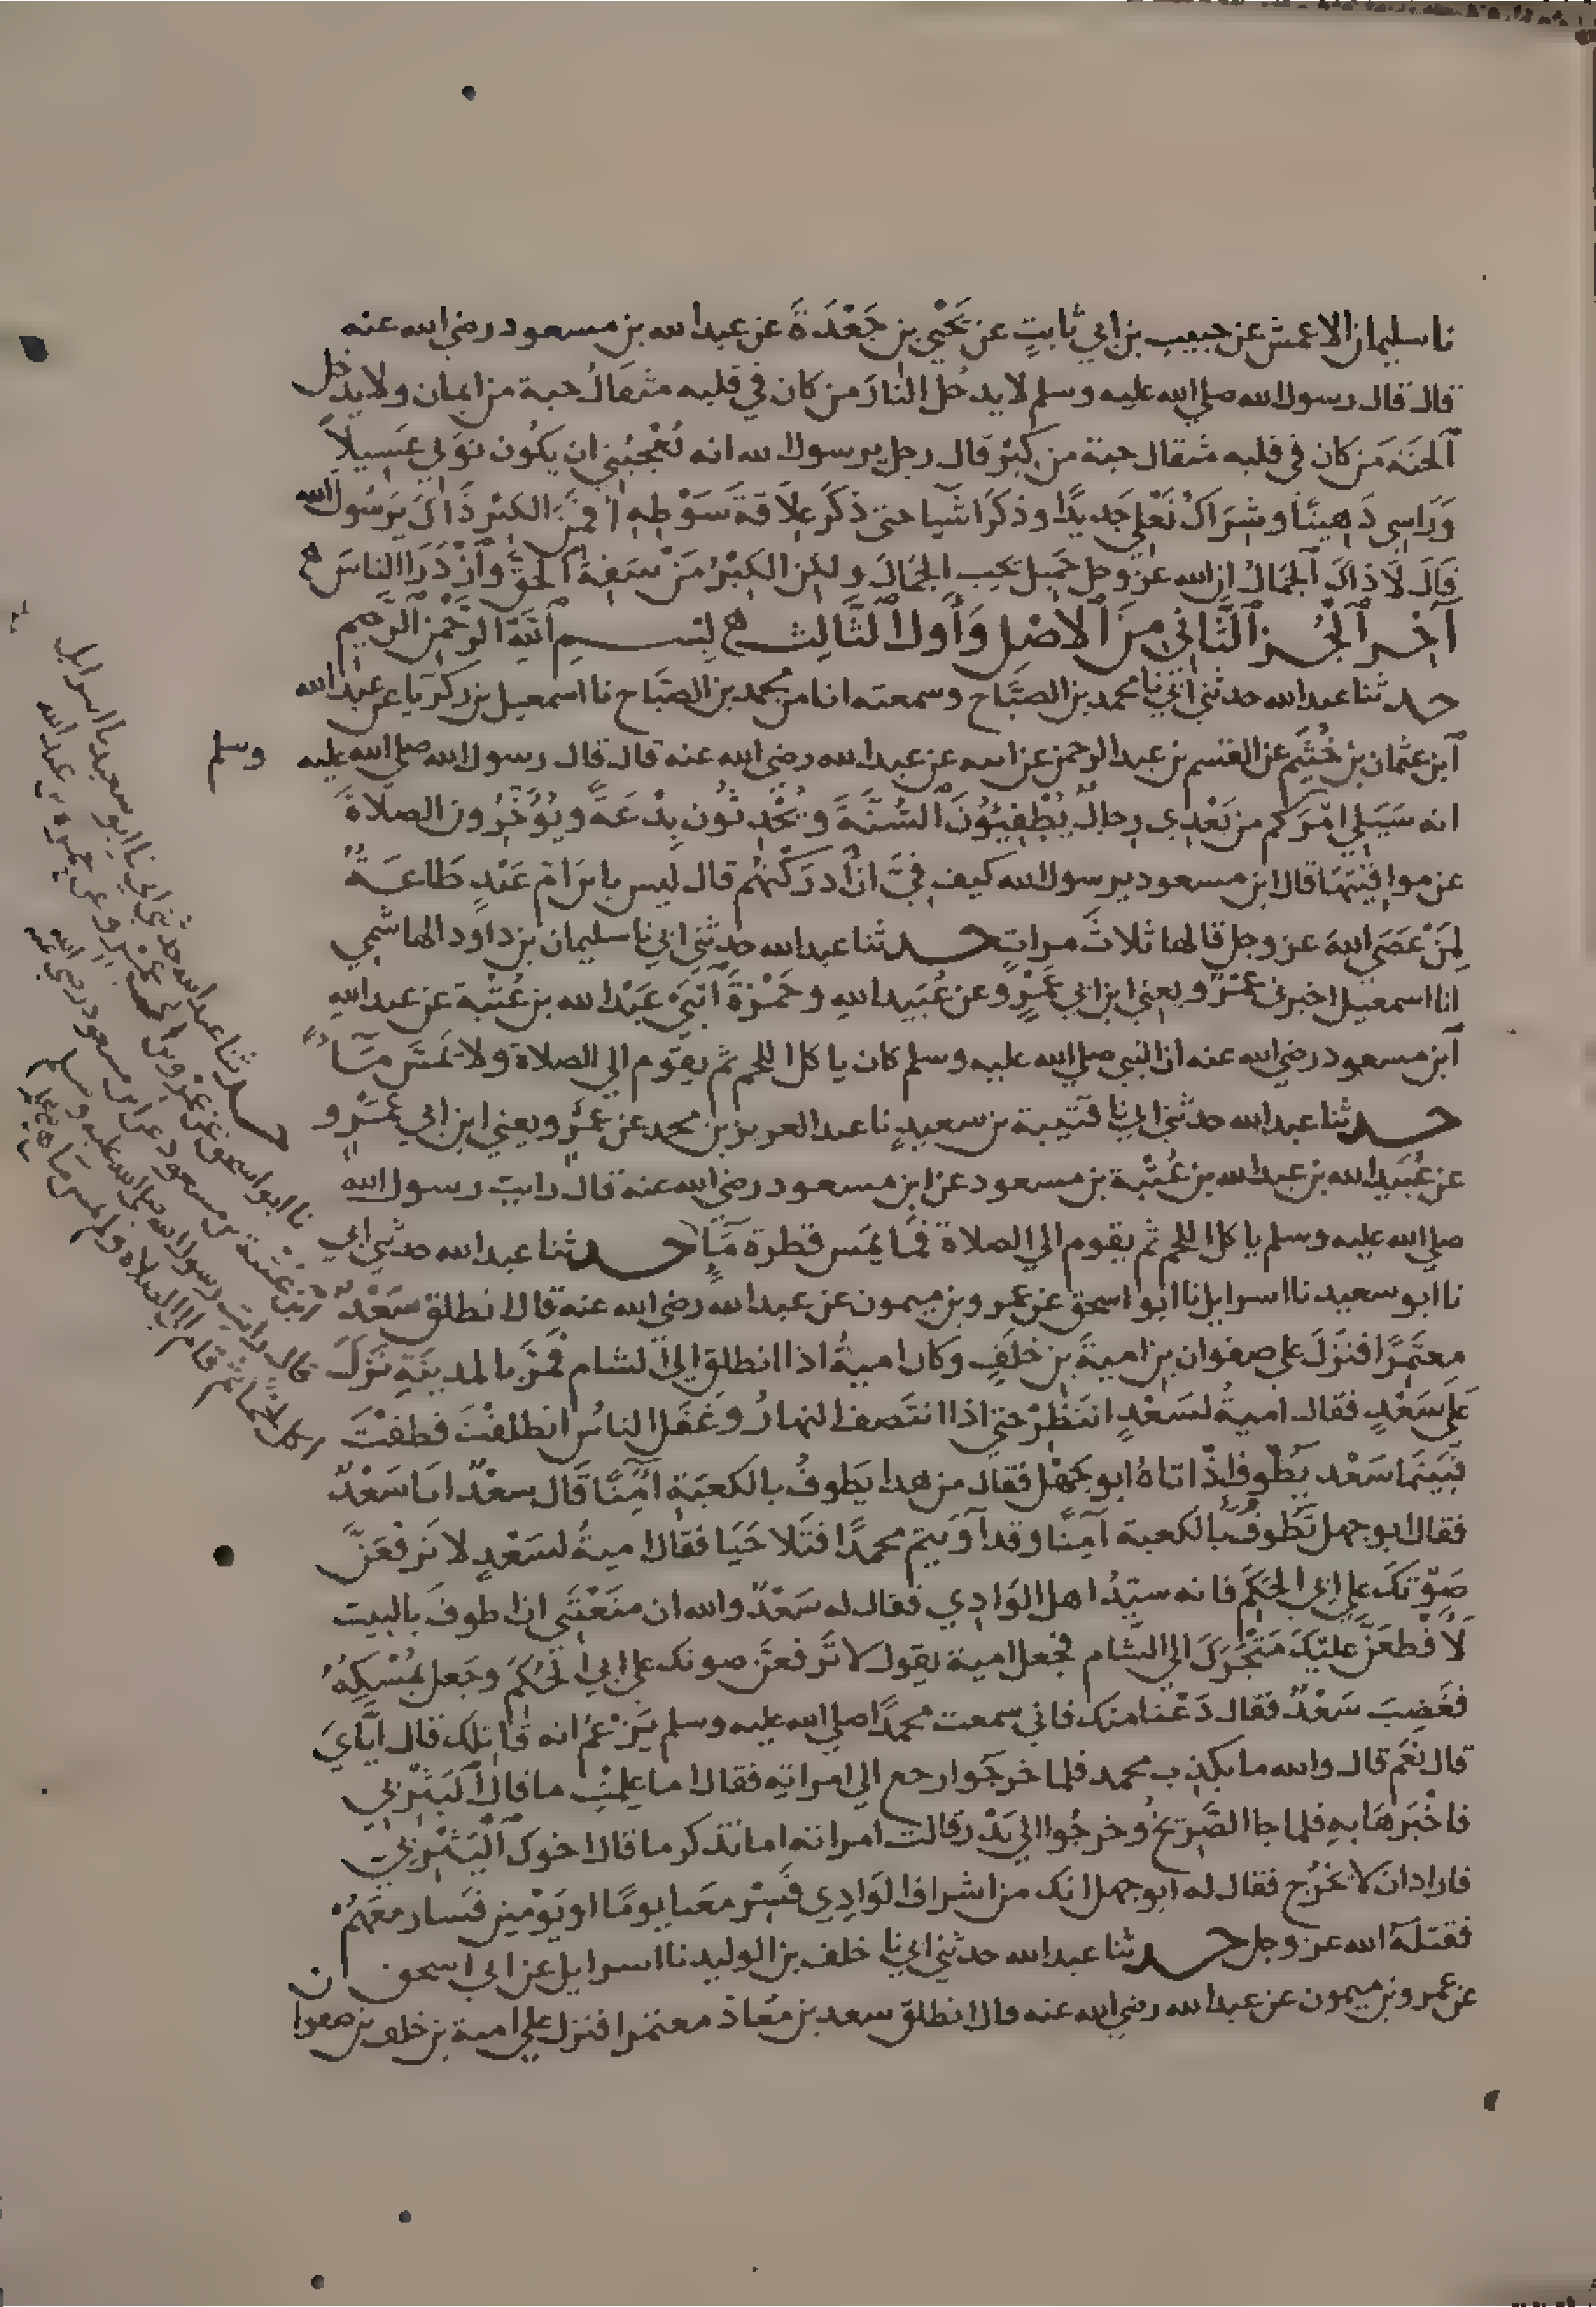 نا سليمان الاعمش عن حبيب بن ابي ثابتٍ عن يَحْيٰى بن جَعْدَةَ عن عبد الله بن مسعود رضي الله عنه
قال قال رسول الله صلى الله عليه وسلم لا يدخُل النارَ من كان في قلبه مثقالُ حبة من ايمان ولا يدخل
الجنة مَن كان في قلبه مثقال حبة من كِبْر قال رجل يرسول الله انه يُعْجبُني ان يكُون ثوبي غَسِيلاً
وَرَاسي دَهِينًا وشِرَاكُ نَعْلِي جَديدًا وذكرَ اشيا حتى ذكَر عِلاَقةَ سَوْطِهِ افَمِنَ الكِبْرِ ذَاكَ يرَسُول الله
قَالَ لَا ذاكَ الجَمالُ ان الله عز وجل جَمِيل يحب الجَمالَ ولكن الكِبْرُ مَنْ سَفِهَ الحقَّ وَازْدَرَا الناسَ
آخر الجُز الثاني مِنَ الاصْلِ وَاَول الثَّالِث بِسمِ اللهِ الرحْمٰن الرحيم
حدثنا عبد الله حدثني ابي نا محمد بن الصَّبَّاح وسمعته انا من محمد بن الصَّبَّاح نا اسمعيل بن زكريَّا عن عبد الله
ابن عثمان بن خُثَيْم عن القسم بن عبد الرحمن عن ابيه عن عبد الله رضي الله عنه قال قال رسول الله صلى الله عليه وسلم
انه سَيَلِي امْرَكم من بَعْدِي رجالٌ يُطْفِيُونَ السُّنَّةَ ويُحْدِثُون بِدْعَةً ويُؤَخِّرُون الصلاةَ
عن مواقيتِهَا قال ابن مسعود يرسول الله كيف بيَّ ان ادرَكْتُهُم قال ليس يا بن ام عَبْدٍ طَاعَةٌ
لِمَنْ عَصَى اللهَ عز وجل قالها ثلاثَ مراتٍ حدثنا عبد الله حدثني ابي نا سليمان بن داود الهاشمي
انا اسمعيل اخبرني عَمْرٌو يعني ابن ابي عَمْرٍو عن عُبَيد الله وحَمْزةَ ابْنَيْ عَبْد الله بن عُتْبة عن عبد الله
ابن مسعود رضي الله عنه ان النبي صلى الله عليه وسلم كان ياكل اللحم ثم يقوم الى الصلاة ولا يَمَسّ مَآءً
حدثنا عبد الله حدثني ابي نا قتيبة بن سعيدٍ نا عبد العزيز بن محمد عن عَمْرٍو يعني ابن ابي عَمْرٍو
عن عُبَيْد الله بن عبد الله بن عُتْبة بن مسعود عن ابن مسعود رضي الله عنه قال رايت رسول الله
صلى الله عليه وسلم ياكل اللحم ثم يقوم الى الصلاة فما يَمَس قطرة مَآءٍ حدثنا عبد الله حدثني ابي
نا ابو سعيد نا اسرايل نا ابو اسحق عن عمرو بن ميمون عن عبد الله رضي الله عنه قال انطلق سَعْدٌ
معتمِرًا فنَزَلَ على صفوان بن اميةَ بن خلَفٍ وكان اميةُ اذا انطلق الى الشام فمَرَّ بالمدينَةِ نَزَلَ
عَلَى سَعْدٍ فقال اميةُ لسَعْدٍ انتظِرْ حتى اذا انتَصف النهارُ وغَفَلَ الناسُ انطلقْتَ فطفْتَ
فَبَيْنَمَا سَعْد يَطُوف اذْ اتاهُ ابو جَهْلٍ فقال من هذا يَطوفُ بالكعبَةِ آمِنًا قَال سعْدٌ انَا سَعْدٌ
فقال ابو جهل تَطوفُ بالكعبة آمِنًا وقد آوَيتم محمدًا فتَلاحَيَا فقال اميةُ لسَعْدٍ لا ترفَعَنَّ
صَوْتَكَ على ابي الحَكَم فانه سيِّدُ اهل الوَادِي فقال له سَعْدٌ والله ان منَعْتَني ان اطوفَ بالبيت
لَاقْطعَنَّ عليْكَ مَتْجَرَكَ الى الشام فجعل امية يقول لا تَرفعَنَّ صوتك على ابي الحَكَم وجَعل يُمْسِكُهُ
فغَضِبَ سَعْدٌ فقال دَعْنا منك فاني سمعت محمدًا صلى الله عليه وسلم يَزْعُم انه قَاتلك قال ايَّايَ
قال نعَم قال والله ما يكذب محمد فلما خرجَوا رجع الى امراتِهِ فقال اما علِمْتِ ما قال اليَثْرِبي
فاخْبَرهَا بهِ فلما جا الصَّرِيخُ وخرجُوا الى بَدْر قالت امراته اما تذكر ما قال اخوك اليَثْرِبي
فاراد ان لا يخرُج فقال له ابو جهل انك من اشراف الوَادِي فَسِرْ معَنا يومًا او يَوْمين فسار معَهُمْ
فقتلَهُ الله عز وجل حدثنا عبد الله حدثني ابي نا خلف بن الوليد نا اسرايل عن ابي اسحق
عن عمرو بن ميمون عن عبد الله رضي الله عنه قال انطلق سعد بن مُعَاذ معتمرا فنزل على امية بن خلف بن صفوان
حدثنا عبد الله حدثني ابي نا ابو سعيد نا اسرايل
نا ابو اسحق عن عَمْرو بن
ابن عتبة بن مسعود عن ابن مسعود رضي الله عنه
قال رايت رسول الله صلى الله عليه وسلم
اكل لحمًا ثم قام الى الصلاة ولم يمس ماء